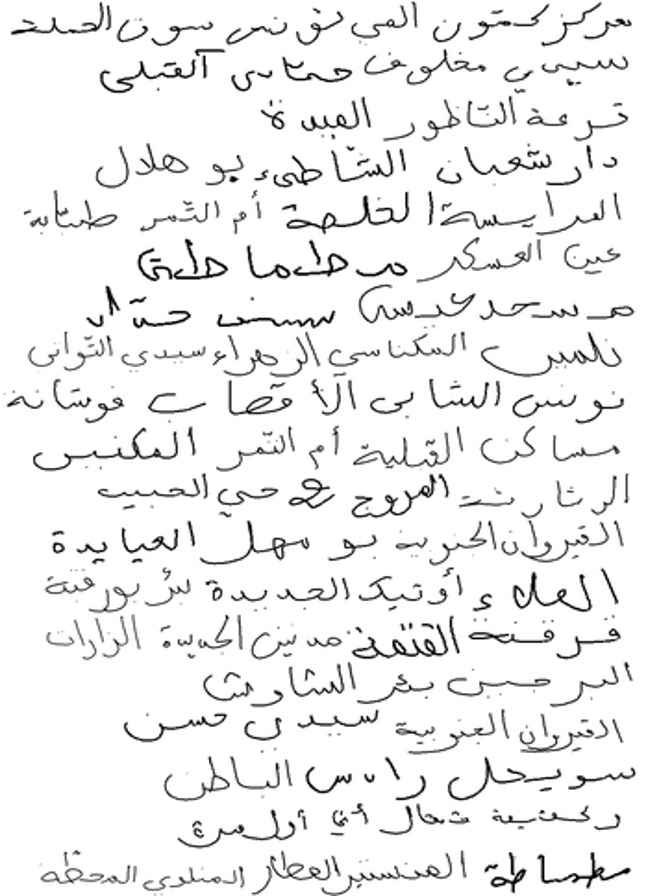 مركز كمتون المي تونس سوق الصلت
سيدي مخلوف حمادي القبلي
ترعة الناظور العبدة
دار شعبان الشاطىء بو هلال
العرايسة الخليجة أم التمر طبابة
عين العسكر مرطاما طاية
مسجد عيسى
نلمين المكناسي الزهراء سيدي التواتي
تونس الشابي الأقصاب فوشانة
مساكن القبلية أم التمر المكنين
الرشارشة المروج حي الحبيب
القيروان الجنوبية بو مهل العيايدة
العلاء أوتيك الجديدة بئر بورقبة
قرقنة القنقنة مدنين الجديدة الزارات
البرجين بئر الشاوش
القيروان الجنوبية سيدي حسن
سويحل راس الباطن
شمال أي أول مرة
مطماطة المنستير العطار المتلوي المحطة